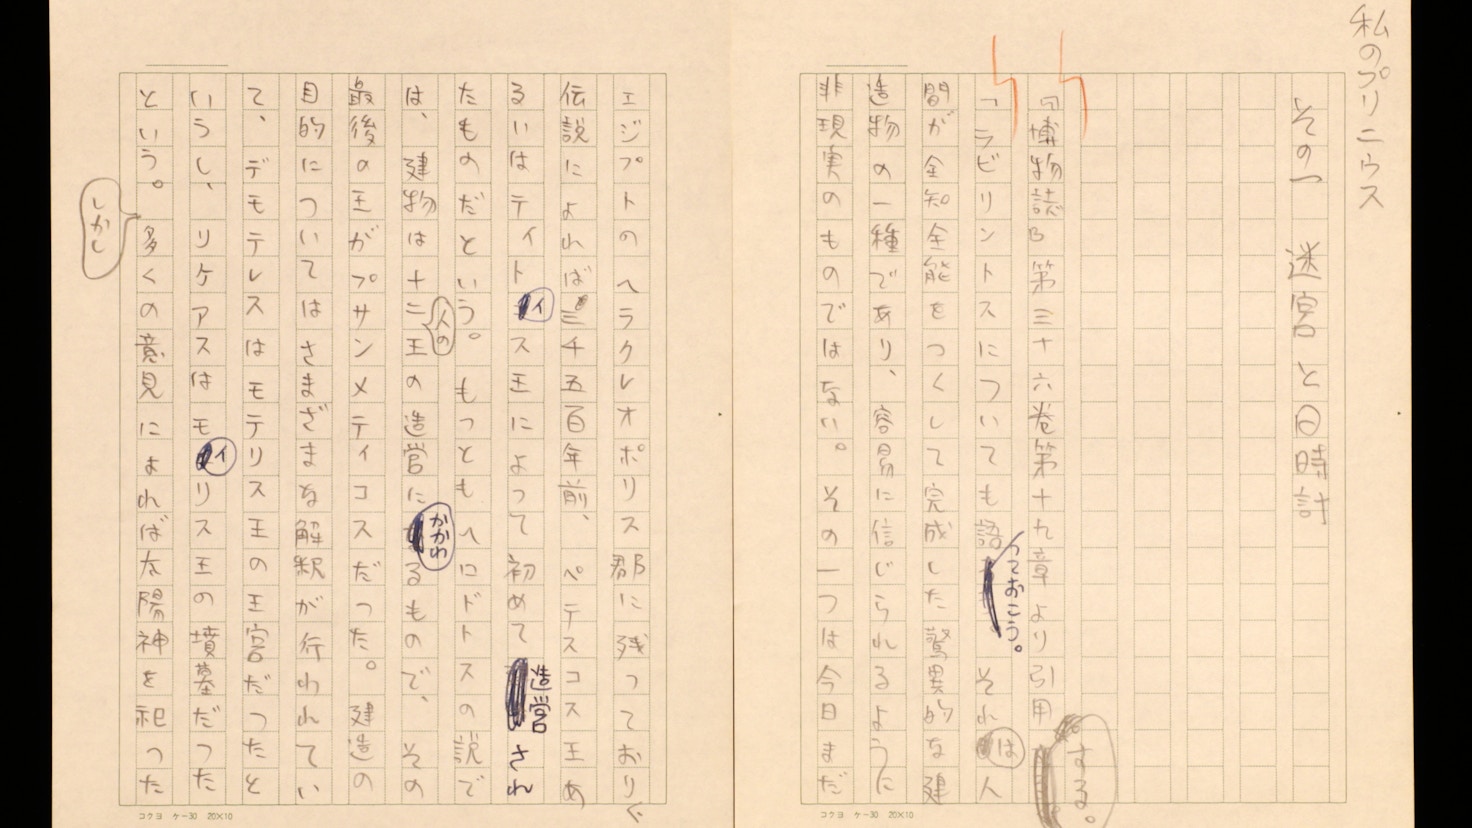 私のプリニウス
その一 迷宮と日時計
『博物誌』第三十六巻第十九章より引用する。
「ラビリントスについても語っておこう。それは人
間が全知全能をつくして完成した驚異的な建
造物の一種であり、容易に信じられるように
非現実のものではない。その一つは今日まだ
エジプトのヘラクレオポリス郡に残っており、
伝説によれば三千五百年前、ペテスコス王あ
るいはティトイス王によって初めて造営され
たものだという。もっともヘロドトスの説で
は、建物は十二人の王の造営にかかわるもので、その
最後の王がプサンメティコスだった。建造の
目的についてはさまざまな解釈が行われてい
て、デモテレスはモテリス王の王宮だったと
いうし、リケアスはモイリス王の墳墓だった
という。しかし多くの意見によれば太陽神を祀った
コクヨ ケ-30 20×10
コクヨ ケ-30 20×10